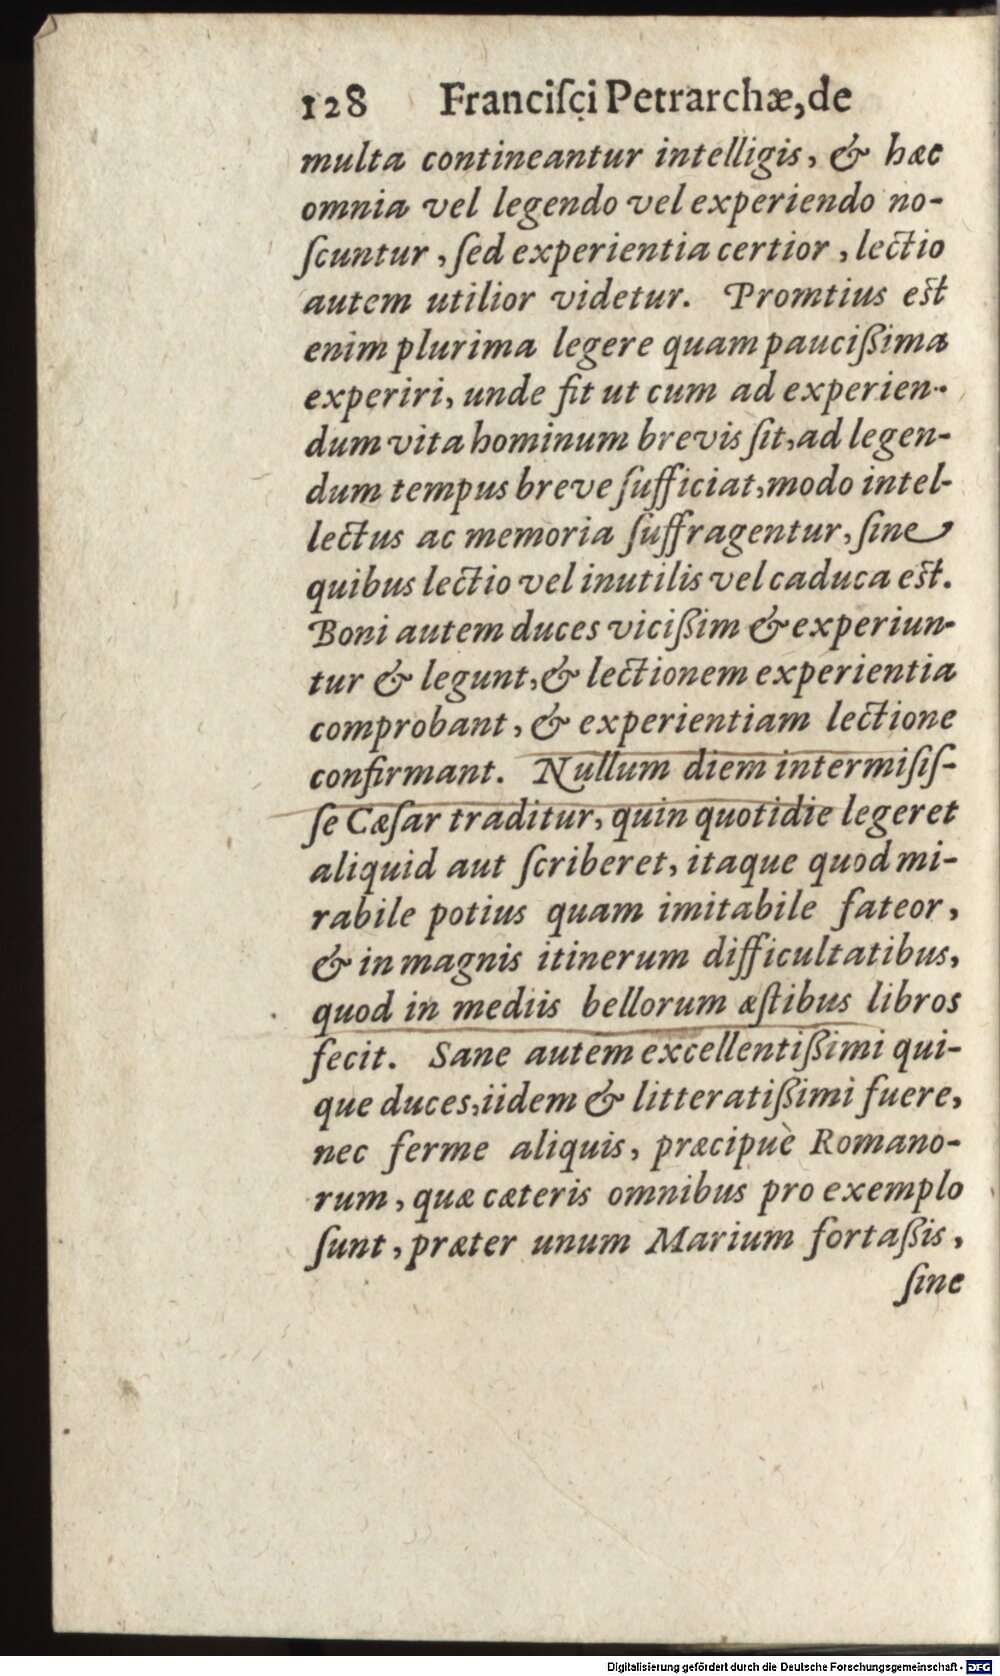 128 Franciſci Petrarchæ, de
multa contineantur intelligis, & hæc
omnia vel legendo vel experiendo no-
ſcuntur, ſed experientia certior, lectio
autem utilior videtur. Promtius eſt
enim plurima legere quam pauciſſima
experiri, unde fit ut cum ad experien-
dum vita hominum brevis ſit, ad legen-
dum tempus breve ſufficiat, modo intel-
lectus ac memoria ſuffragentur, ſine
quibus lectio vel inutilis vel caduca eſt.
Boni autem duces viciſſim & experiun-
tur & legunt, & lectionem experientia
comprobant, & experientiam lectione
confirmant. Nullum diem intermiſiſ-
ſe Cæſar traditur, quin quotidie legeret
aliquid aut ſcriberet, itaque quod mi-
rabile potius quam imitabile fateor,
& in magnis itinerum difficultatibus,
quod in mediis bellorum æſtibus libros
fecit. Sane autem excellentiſſimi qui-
que duces, iidem & litteratiſſimi fuere,
nec ferme aliquis, præcipuè Romano-
rum, quæ cæteris omnibus pro exemplo
ſunt, præter unum Marium fortaſſis,
ſine
Digitalisierung gefördert durch die Deutsche Forschungsgemeinschaft - DFG